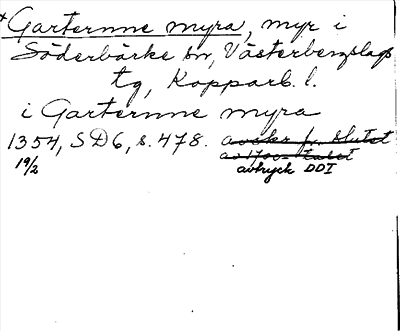 *Garternne myra, myr i
Söderbärke sn, Västerbergslags
tg, Kopparb. l.
i Garternne myra
1354, SD6, s. 478. avskr. fr. slutet
19/2 av 1700-talet
avtryck DDI